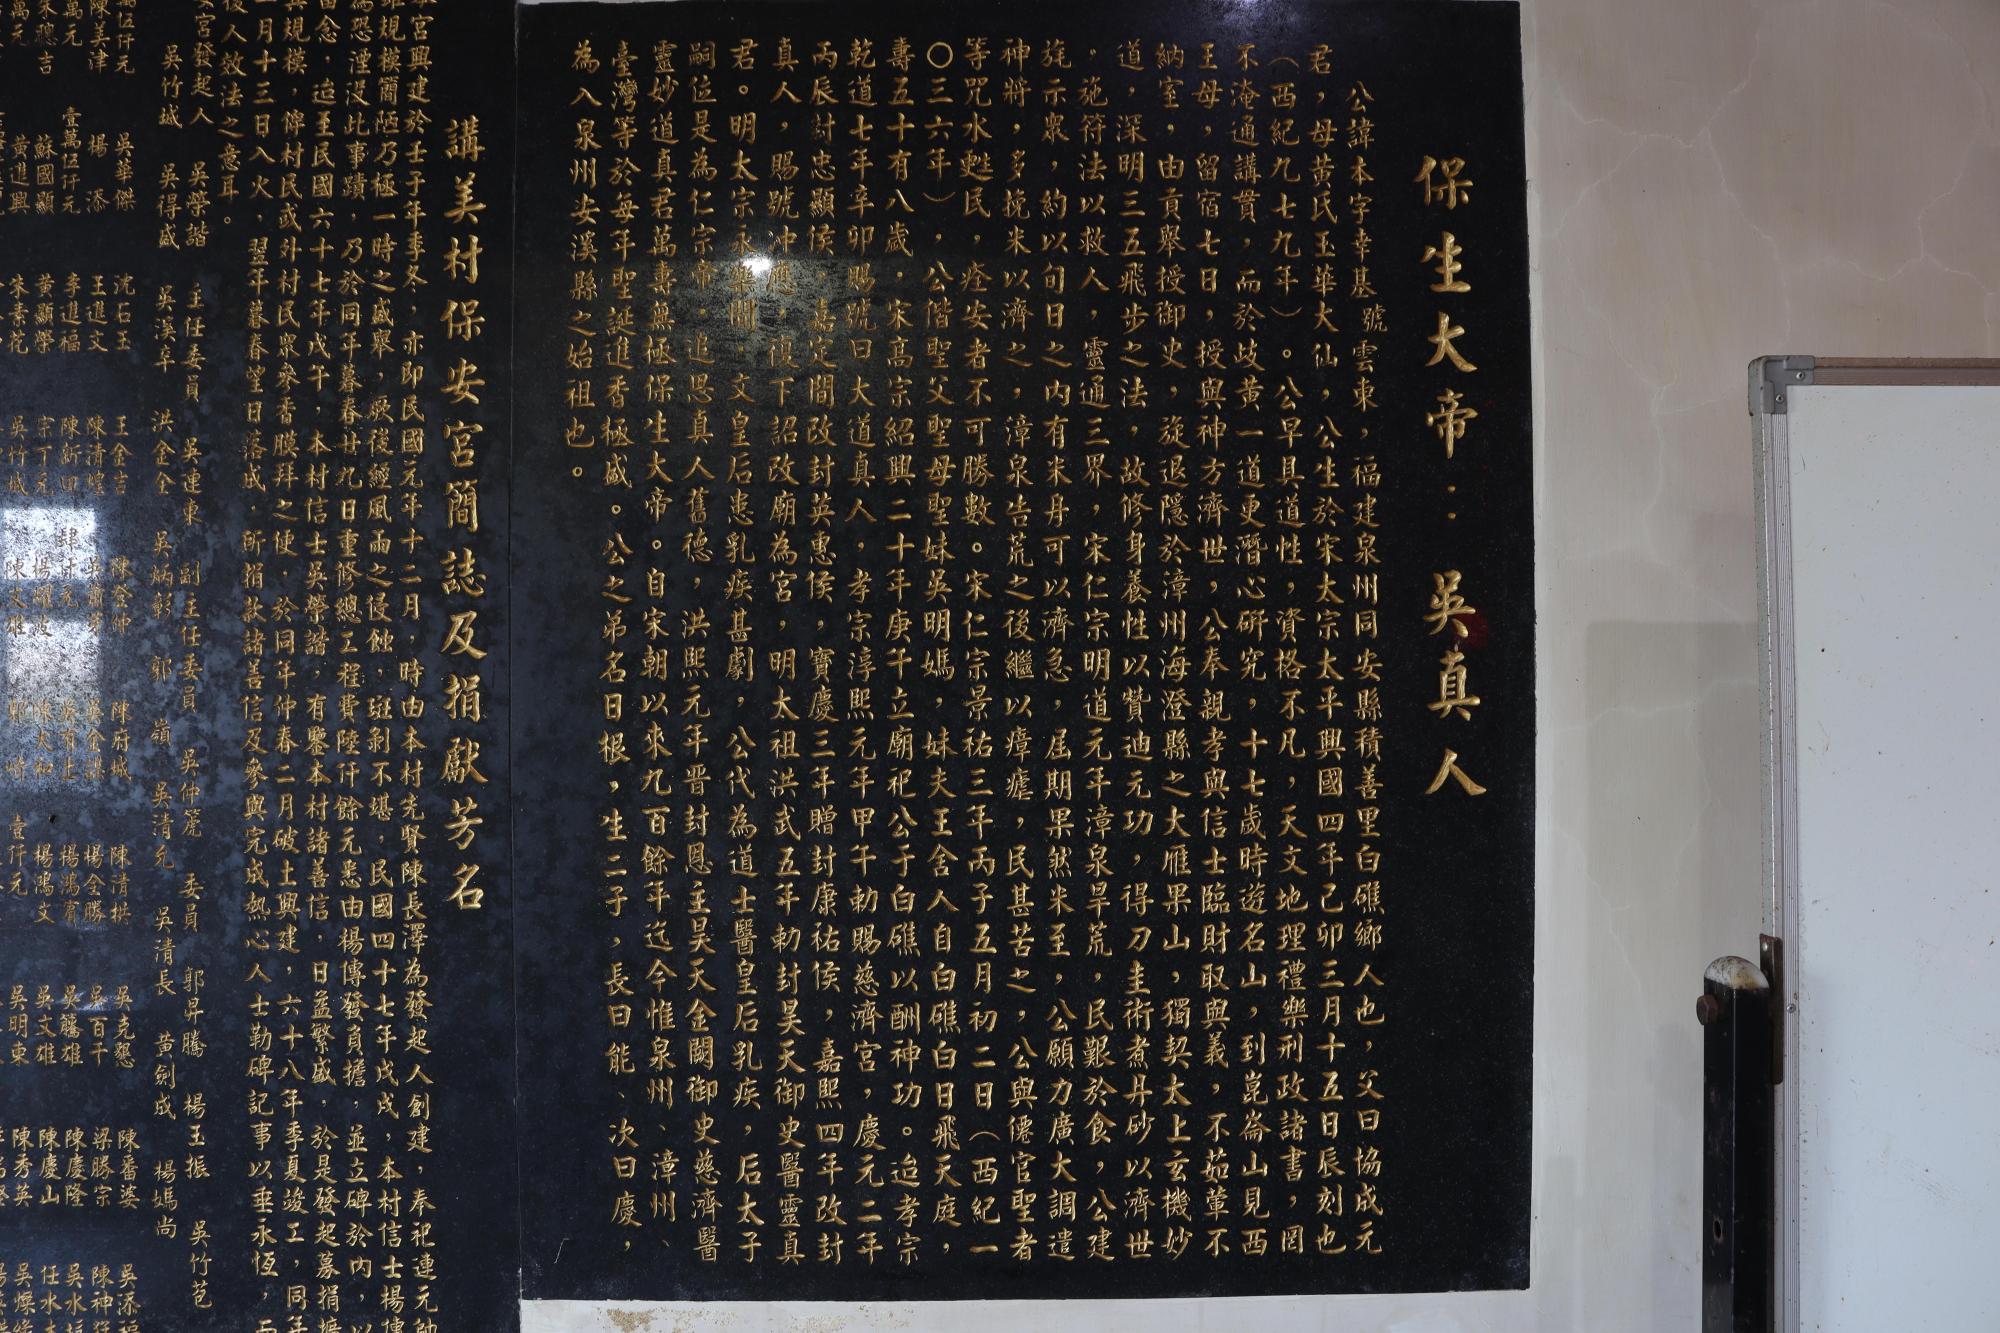 保生大帝：吳真人
公諱本字華基號雲東，福建泉州同安縣積善里白礁鄉人也，父曰協成元
君，母黃氏玉華大仙，公生於宋太宗太平興國四年己卯三月十五日辰刻也
（西紀九七九年）。公早具道性，資格不凡，天文地理禮樂刑政諸書，罔
不淹通講貫，而於歧黃一道更潛心研究，十七歲時遊名山，到崑崙山見西
王母，留宿七日，授與神方濟世，公奉親孝與信士臨財取與義，不茹葷不
納室，由貢舉授御史，旋退隱於漳州海澄縣之大雁果山，獨契太上玄機妙
道，深明三五飛步之法，故修身養性以贊迪元功，得刀圭術煮丹砂以濟世
。施符法以救人，靈通三界，宋仁宗明道元年漳泉旱荒，民艱於食，公建
旄示眾，約以旬日之內有米舟可以濟急，屆期果然米至，公願力廣大調遣
神將，多挽米以濟之，漳泉告荒之後繼以瘴瘧，民甚苦之，公與僊官聖者
等咒水甦民，痊安者不可勝數。宋仁宗景祐三年丙子五月初二日（西紀一
〇三六年），公偕聖父聖母聖妹吳明媽，妹夫王舍人自白礁白日飛天庭，
壽五十有八歲．宋高宗紹興二十年庚午立廟祀公于白礁以酬神功。迨孝宗
乾道七年辛卯賜號曰大道真人，孝宗淳熙元年甲午勅賜慈濟宮，慶元二年
丙辰封忠顯侯，嘉定間改封英惠侯，寶慶三年贈封康祐侯，嘉熙四年改封
真人，賜號冲應，復下詔改廟為宮，明太祖洪武五年勅封昊天御史醫靈真
君。明太宗永樂間，文皇后患乳疾甚劇，公代為道士醫皇后乳疾，后太子
嗣位是為仁宗帝，追思真人舊德，洪熙元年晋封恩主昊天金闕御史慈濟醫
靈妙道真君萬壽無極保生大帝。自宋朝以來九百餘年迄今惟泉州、漳州、
臺灣等於每年聖誕進香極盛。公之弟名曰根，生二子，長曰能、次曰慶，
為入泉州安溪縣之始祖也。
講美村保安宮簡誌及捐獻芳名
宮興建於壬子年季冬，亦即民國元年十二月，時由本村先賢陳長澤為發起人創建，奉祀連元帥
雖規模簡陋乃極一時之盛舉，厥後經風雨之侵蝕，斑剝不堪，民國四十七年戊戌，本村信士楊傳
為恐湮沒此事蹟，乃於同年暮春廿九日重修總工程費陸仟餘元悉由楊傳發負擔，並立碑於內，以
留念，迨至民國六十七年戊午，本村信士吳榮諧，有鑒本村諸善信，日益繁盛，於是發起募捐擴
規模，俾村民或外村民眾參香膜拜之便，於同年仲春二月破土興建，六十八年季夏竣工，同年
月十三日入火，翌年暮春望日落成，所捐款諸善信及參與完成熱心人士勒碑記事以垂永恆，
後人效法之意耳。
安宮發起人 吳榮諧 主任委員 吳運東 副主任委員 吳仲箎 委員 郭昇騰 楊玉振 吳竹苞
吳竹城 吳得盛 吳溪辛 洪金全 吳炳彰 郭嶺 吳清允 吳清長 黃劍成 楊媽尚
萬伍仟元 吳華傑 沈石玉 王金吉 陳金仲 陳府城 陳清拱 吳克懇 陳番婆
陳美津 楊添 王進文 陳清煌 楊全勝 吳百千 梁勝宗
萬元 壹萬伍仟元 李進福 陳新田 楊鴻賓 吳騰雄 陳慶隆
朱聰吉 蘇國顯 黃顯榮 宗丁元 楊耀波 陳天和 楊鴻文 吳文雄 陳慶山
萬元 黃進興 朱素花 吳竹城 陳文雄 壹仟元 吳明東 陳秀英